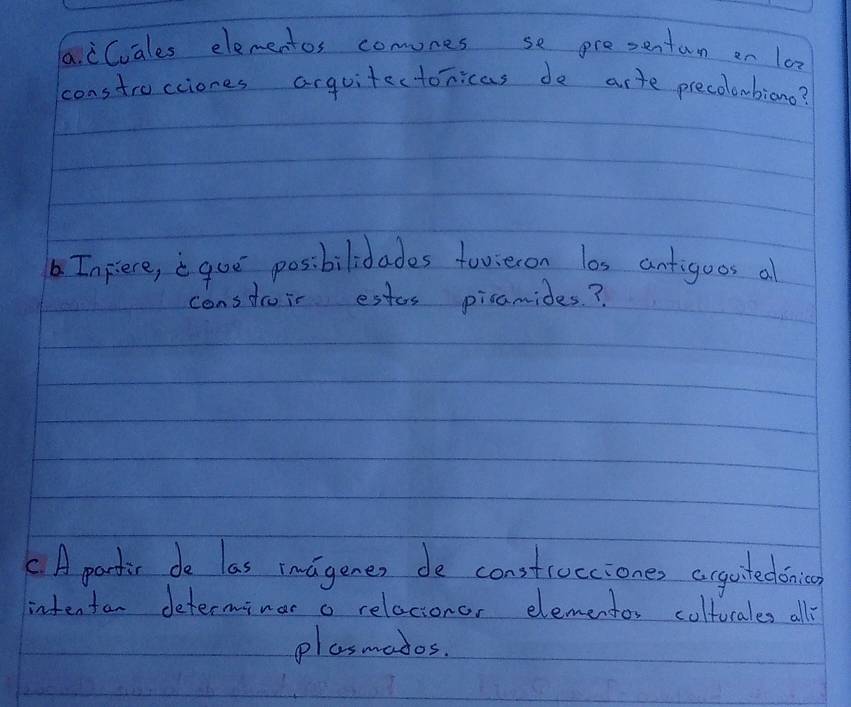 a. ¿Cuáles elementos comunes se presentan en las
construcciones arquitectónicas de arte precolombiano?
b. Infiere, ¿qué posibilidades tuvieron los antiguos al
construir estas piramides?
c. A partir de las imágenes de construcciones arquitedónicas
intentan determinar o relacionar elementos culturales allí
plasmados.